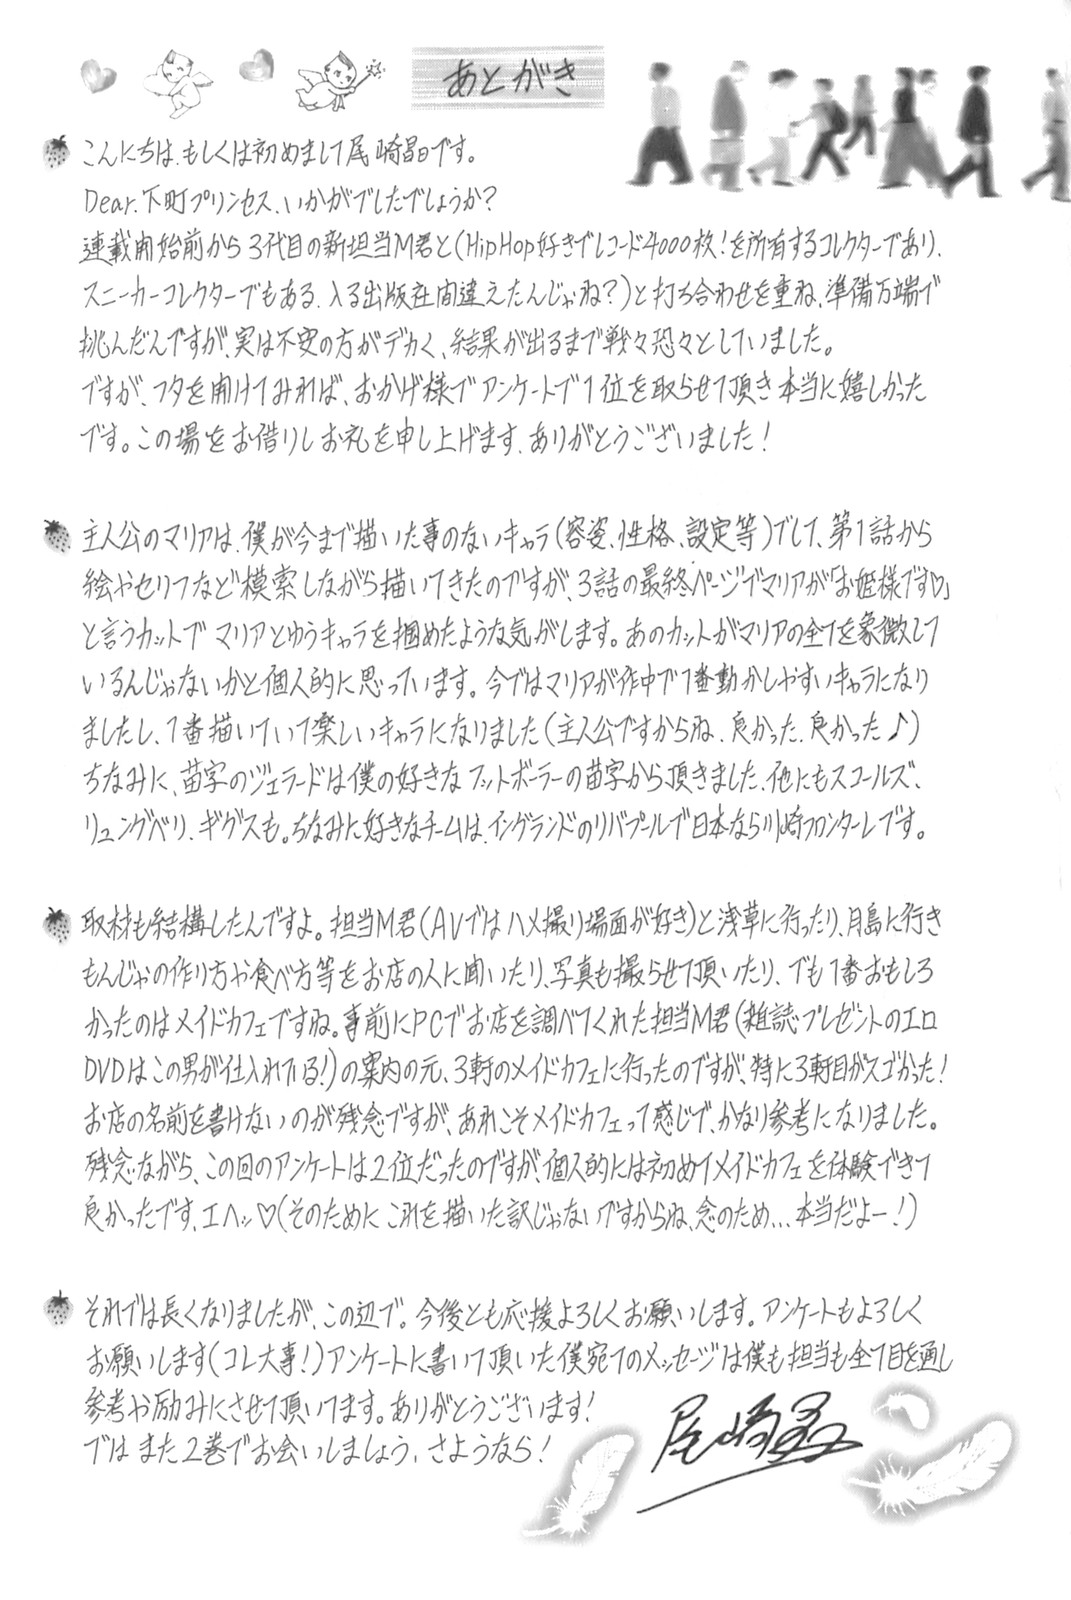 あとがき
こんにちは、もしくは初めまして尾崎晶です。
Dear.下町プリンセス、いかがでしたでしょうか?
連載開始前から3代目の新担当M君と(HipHop好きでレコード4000枚!を所有するコレクターであり、
スニーカーコレクターでもある、入る出版社間違えたんじゃね?)と打ち合わせを重ね、準備万端で
挑んだんですが、実は不安の方がデカく、結果が出るまで戦々恐々としていました。
ですが、フタを開けてみれば、おかげ様でアンケートで1位を取らせて頂き本当に嬉しかった
です。この場をお借りしお礼を申し上げます、ありがとうございました!
主人公のマリアは、僕が今まで描いた事のないキャラ(容姿、性格、設定等)でして、第1話から
絵やセリフなど模索しながら描いてきたのですが、3話の最終ページでマリアが「お姫様です♡」
と言うカットでマリアとゆうキャラを掴めたような気がします。あのカットがマリアの全てを象徴して
いるんじゃないかと個人的に思っています。今ではマリアが作中で1番動かしやすいキャラになり
ましたし、1番描いていて楽しいキャラになりました(主人公ですからね、良かった、良かった♪)
ちなみに、苗字のジェラードは僕の好きなフットボーラーの苗字から頂きました、他にもスコールズ、
リュングベリ、ギグスも。ちなみに好きなチームは、イングランドのリバプールで日本なら川崎フロンターレです。
取材も結構したんですよ。担当M君(AVではハメ撮り場面が好き)と浅草に行ったり、月島に行き
もんじゃの作り方や食べ方等をお店の人に聞いたり、写真も撮らせて頂いたり、でも1番おもしろ
かったのはメイドカフェですね。事前にPCでお店を調べてくれた担当M君(雑誌プレゼントのエロ
DVDはこの男が仕入れてる!)の案内の元、3軒のメイドカフェに行ったのですが、特に3軒目がスゴかった!
お店の名前を書けないのが残念ですが、あれこそメイドカフェって感じで、かなり参考になりました。
残念ながら、この回のアンケートは2位だったのですが、個人的には初めてメイドカフェを体験できて
良かったです、エヘッ♡(そのためにこれを描いた訳じゃないですからね、念のため…本当だよー!)
それでは長くなりましたが、この辺で。今後とも応援よろしくお願いします。アンケートもよろしく
お願いします(コレ大事!)アンケートに書いて頂いた僕宛てのメッセージは僕も担当も全て目を通し
参考や励みにさせて頂いてます。ありがとうございます!
ではまた2巻でお会いしましょう、さようなら!
尾崎晶